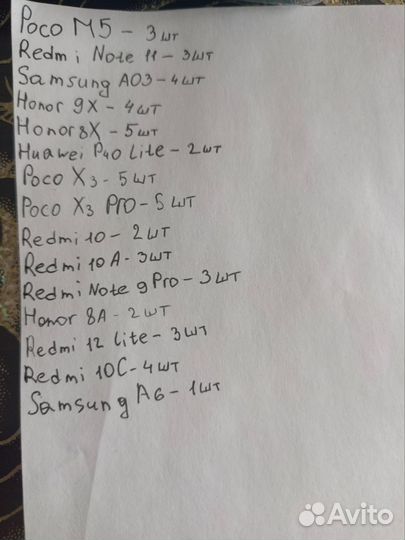 Poco M5 - 3шт
Redmi Note 11 - 3шт
Samsung A03 - 4шт
Honor 9X - 4шт
Honor 8X - 5шт
Huawei P40 Lite - 2шт
Poco X3 - 5шт
Poco X3 Pro - 5шт
Redmi 10 - 2шт
Redmi 10A - 3шт
Redmi Note 9 Pro - 3шт
Honor 8A - 2шт
Redmi 12 Lite - 3шт
Redmi 10C - 4шт
Samsung A6 - 1шт
Avito